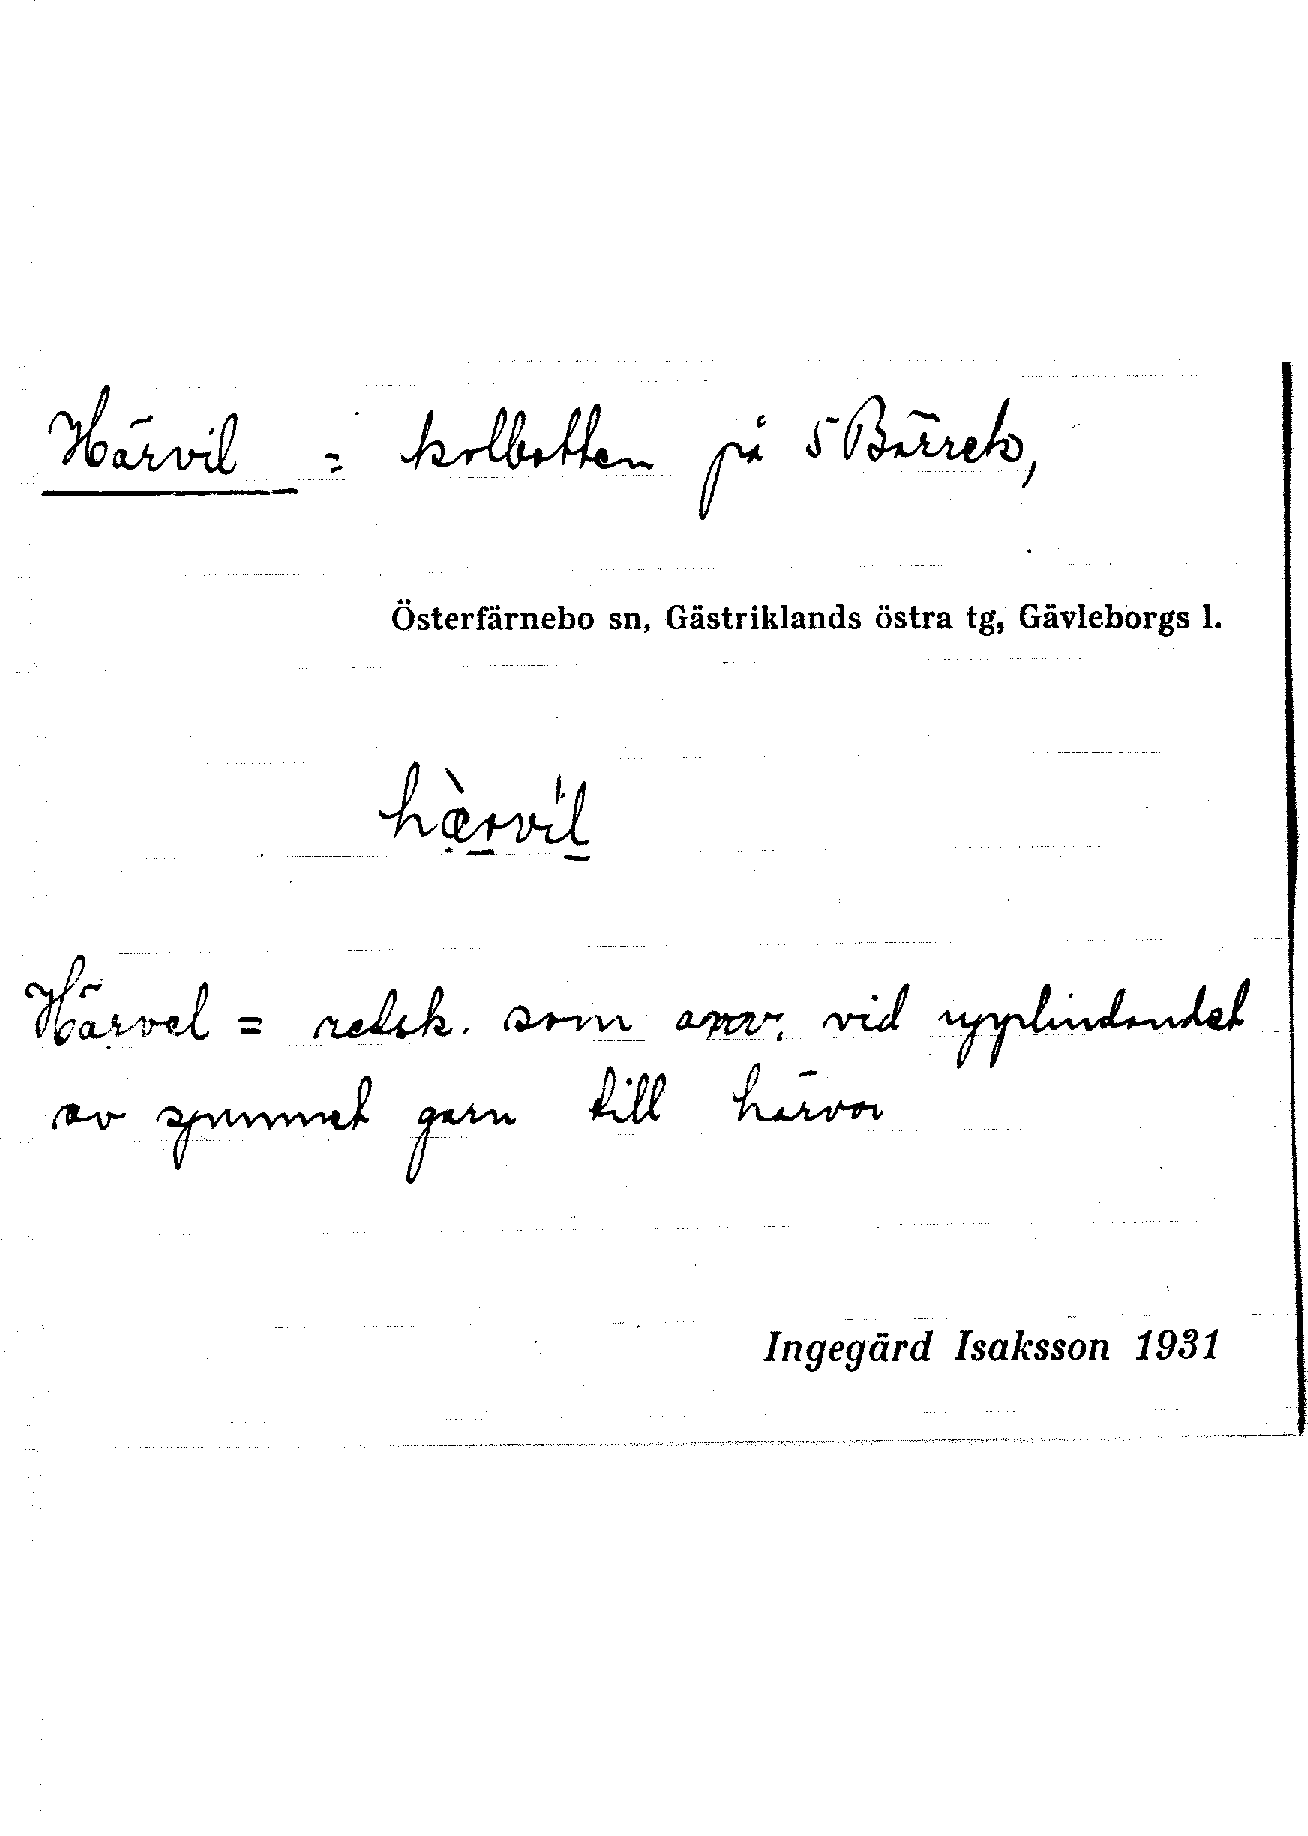 Härvil = kolbotten på 5 Bärrek,
Österfärnebo sn, Gästriklands östra tg, Gävleborgs l.
hæ̣̀rvil
Härvel = redsk. som anv. vid upplindandet
av spunnet garn till härvor
Ingegärd Isaksson 1931